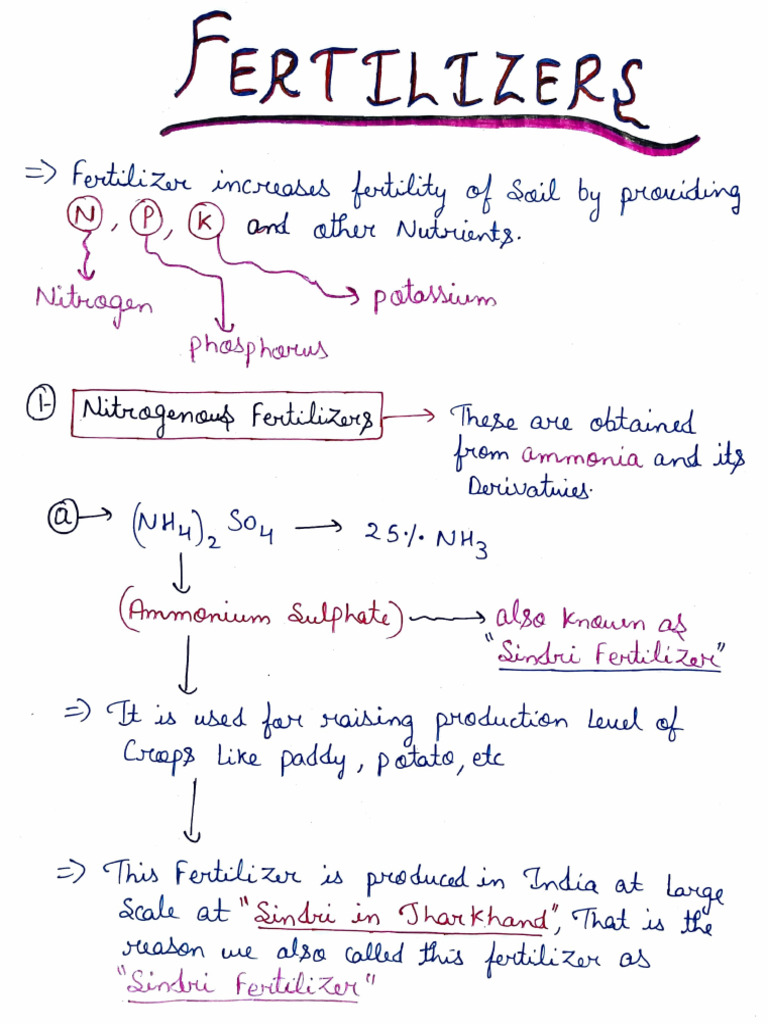 FERTILIZERS
⇒ Fertilizer increases fertility of Soil by providing
N, P, K and other Nutrients.
Nitrogen
potassium
phosphorus
1- Nitrogenous Fertilizers → These are obtained
from ammonia and its
Derivatives.
a → (NH4)2 SO4 → 25% NH3
(Ammonium Sulphate) → also known as
"Sindri Fertilizer"
⇒ It is used for raising production Level of
Crops Like paddy, potato, etc
⇒ This Fertilizer is produced in India at Large
Scale at "Sindri in Jharkhand", That is the
reason we also called this fertilizer as
"Sindri Fertilizer"